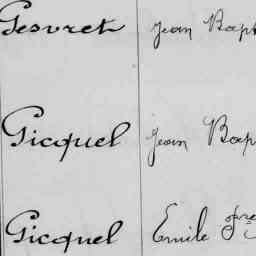 Gesvret Jean Bapt
Gicquel Jean Bap
Gicquel Emile